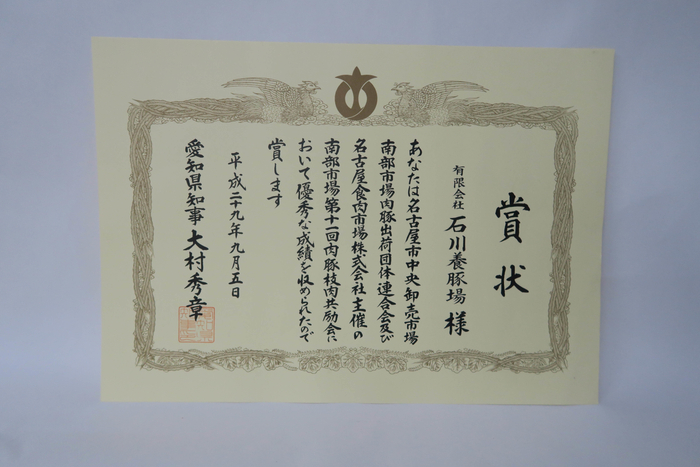 賞状
有限会社 石川養豚場 様
あなたは名古屋市中央卸売市場
南部市場肉豚出荷団体連合会及び
名古屋食肉市場株式会社主催の
南部市場第十一回肉豚枝肉共励会に
おいて優秀な成績を収められたので
賞します
平成二十九年九月五日
愛知県知事 大村秀章